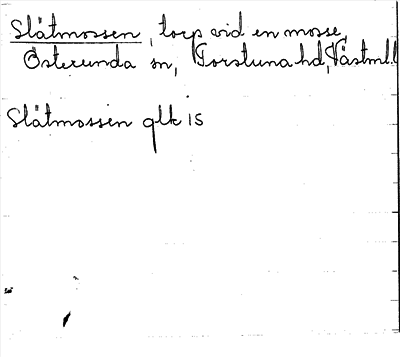 Slåtmossen, torp vid en mosse,
Österunda sn, Torstuna hd, Västml.
Slåtmossen glk is